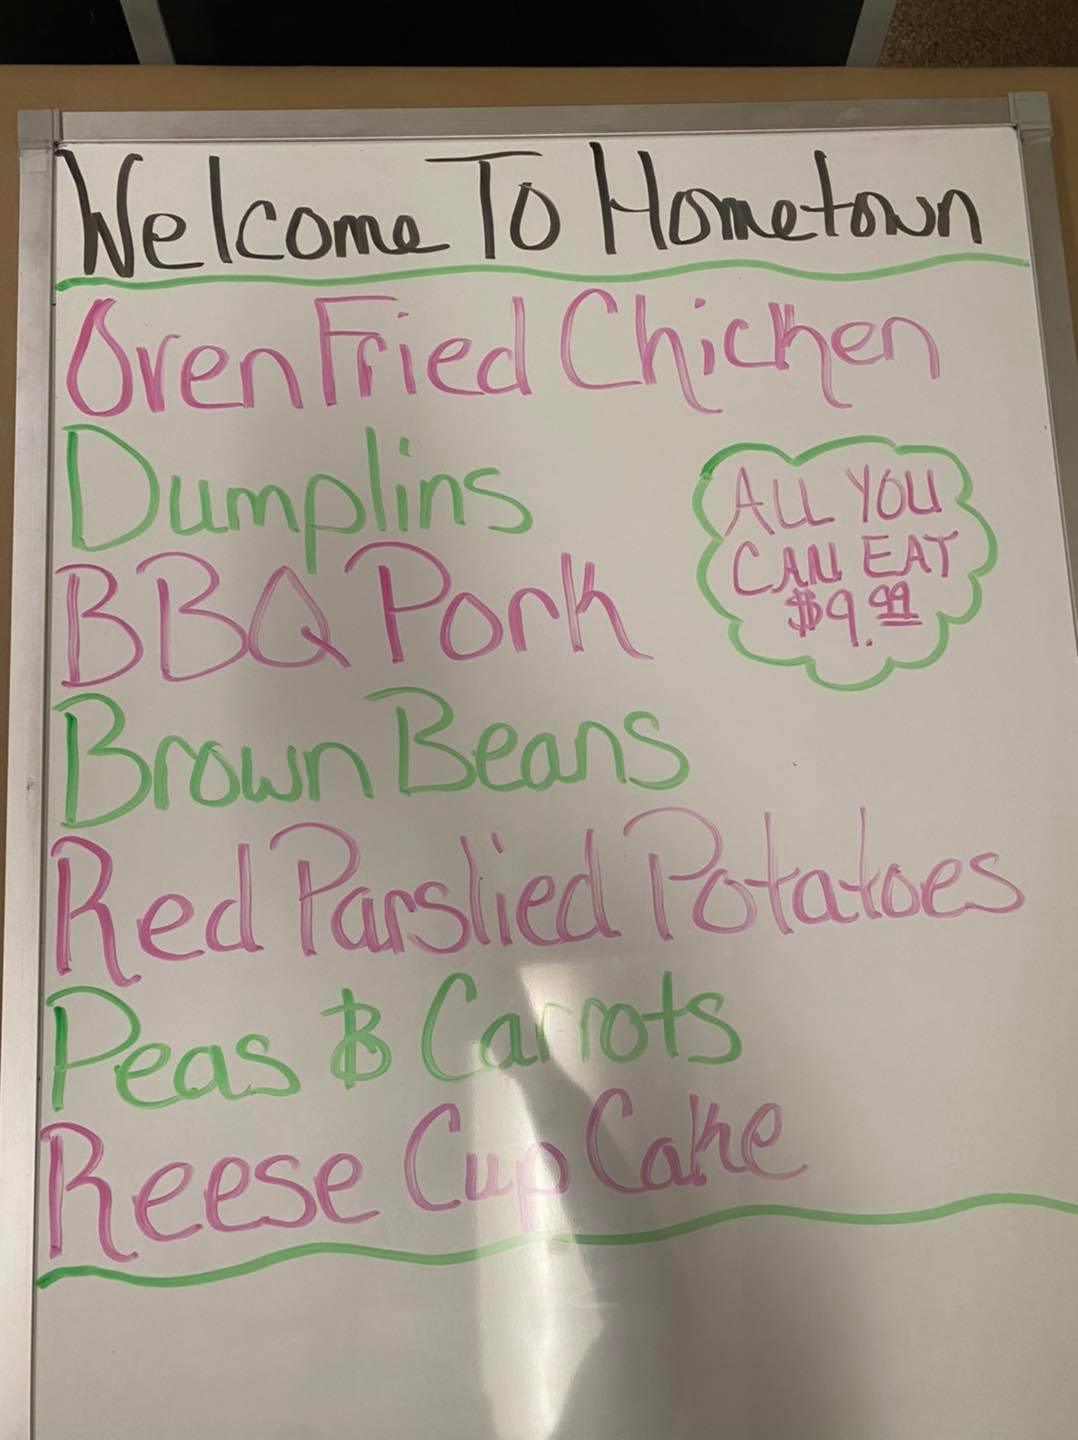 Welcome To Hometown
Oven Fried Chicken
Dumplins
ALL YOU
CAN EAT
$9.99
BBQ Pork
Brown Beans
Red Parslied Potatoes
Peas & Carrots
Reese Cup Cake